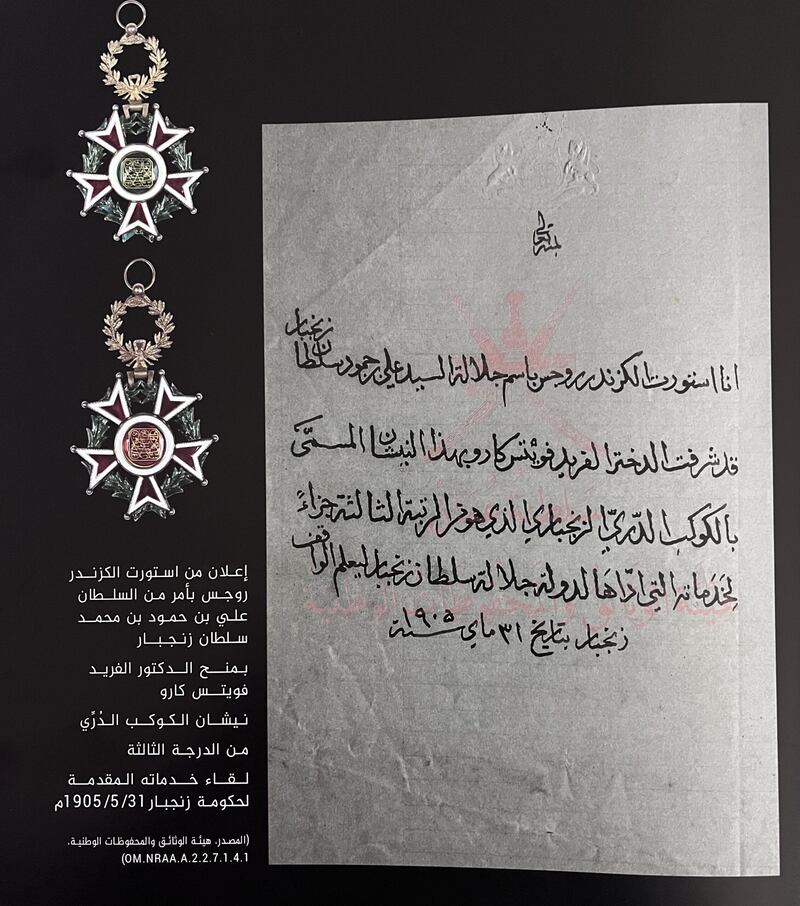 بمنه تعالى
انا استورت الكزندر روجس باسم جلالة السيد علي بن حمود سلطان زنجبار
قد شرفت الدختر الفريد فويتس كارو بهذا النيشان المسمّى
بالكوكب الدّريّ الزنجباري الذي هو من المرتبة الثالثة جزاءً
لخَدَماته التي ادّاها لدولة جلالة سلطان زنجبار ليعلم الواقف
زنجبار بتاريخ ٣١ ماي سنة ١٩٠٥
هيئة الوثائق والمحفوظات الوطنية
إعلان من استورت الكزندر
روجس بأمر من السلطان
علي بن حمود بن محمد
سلطان زنجبار
بمنح الدكتور الفريد
فويتس كارو
نيشان الكوكب الدُرِّي
من الدرجة الثالثة
لقاء خدماته المقدمة
لحكومة زنجبار 1905/5/31م
(المصدر: هيئة الوثائق والمحفوظات الوطنية،
OM.NRAA.A.2.2.7.1.4.1)